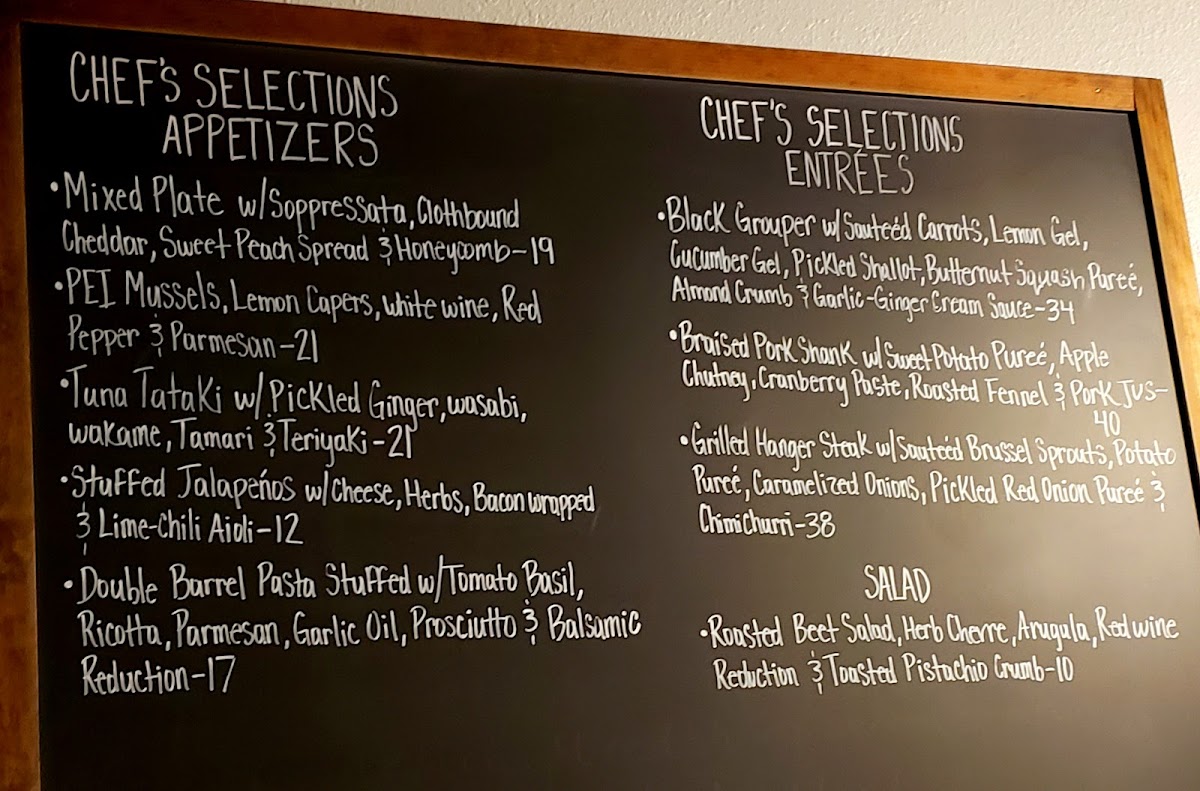 CHEF'S SELECTIONS
APPETIZERS
•Mixed Plate w/Soppressata, Clothbound
Cheddar, Sweet Peach Spread & Honeycomb-19
•PEI Mussels, Lemon Capers, white wine, Red
Pepper & Parmesan-21
•Tuna Tataki w/ Pickled Ginger, wasabi,
wakame, Tamari & Teriyaki-21
•Stuffed Jalapeños w/Cheese, Herbs, Bacon wrapped
& Lime-Chili Aioli-12
•Double Barrel Pasta Stuffed w/Tomato Basil,
Ricotta, Parmesan, Garlic Oil, Prosciutto & Balsamic
Reduction-17
CHEF'S SELECTIONS
ENTRÉES
•Black Grouper w/Sauteéd Carrots, Lemon Gel,
Cucumber Gel, Pickled Shallot, Butternut Squash Pureé,
Almond Crumb & Garlic-Ginger Cream Sauce-34
•Braised Pork Shank w/ Sweet Potato Pureé, Apple
Chutney, Cranberry Paste, Roasted Fennel & Pork Jus-
40
•Grilled Hanger Steak w/Sauteéd Brussel Sprouts, Potato
Pureé, Caramelized Onions, Pickled Red Onion Pureé &
Chimichurri-38
SALAD
•Roasted Beet Salad, Herb Chevre, Arugula, Red wine
Reduction & Toasted Pistachio Crumb-10